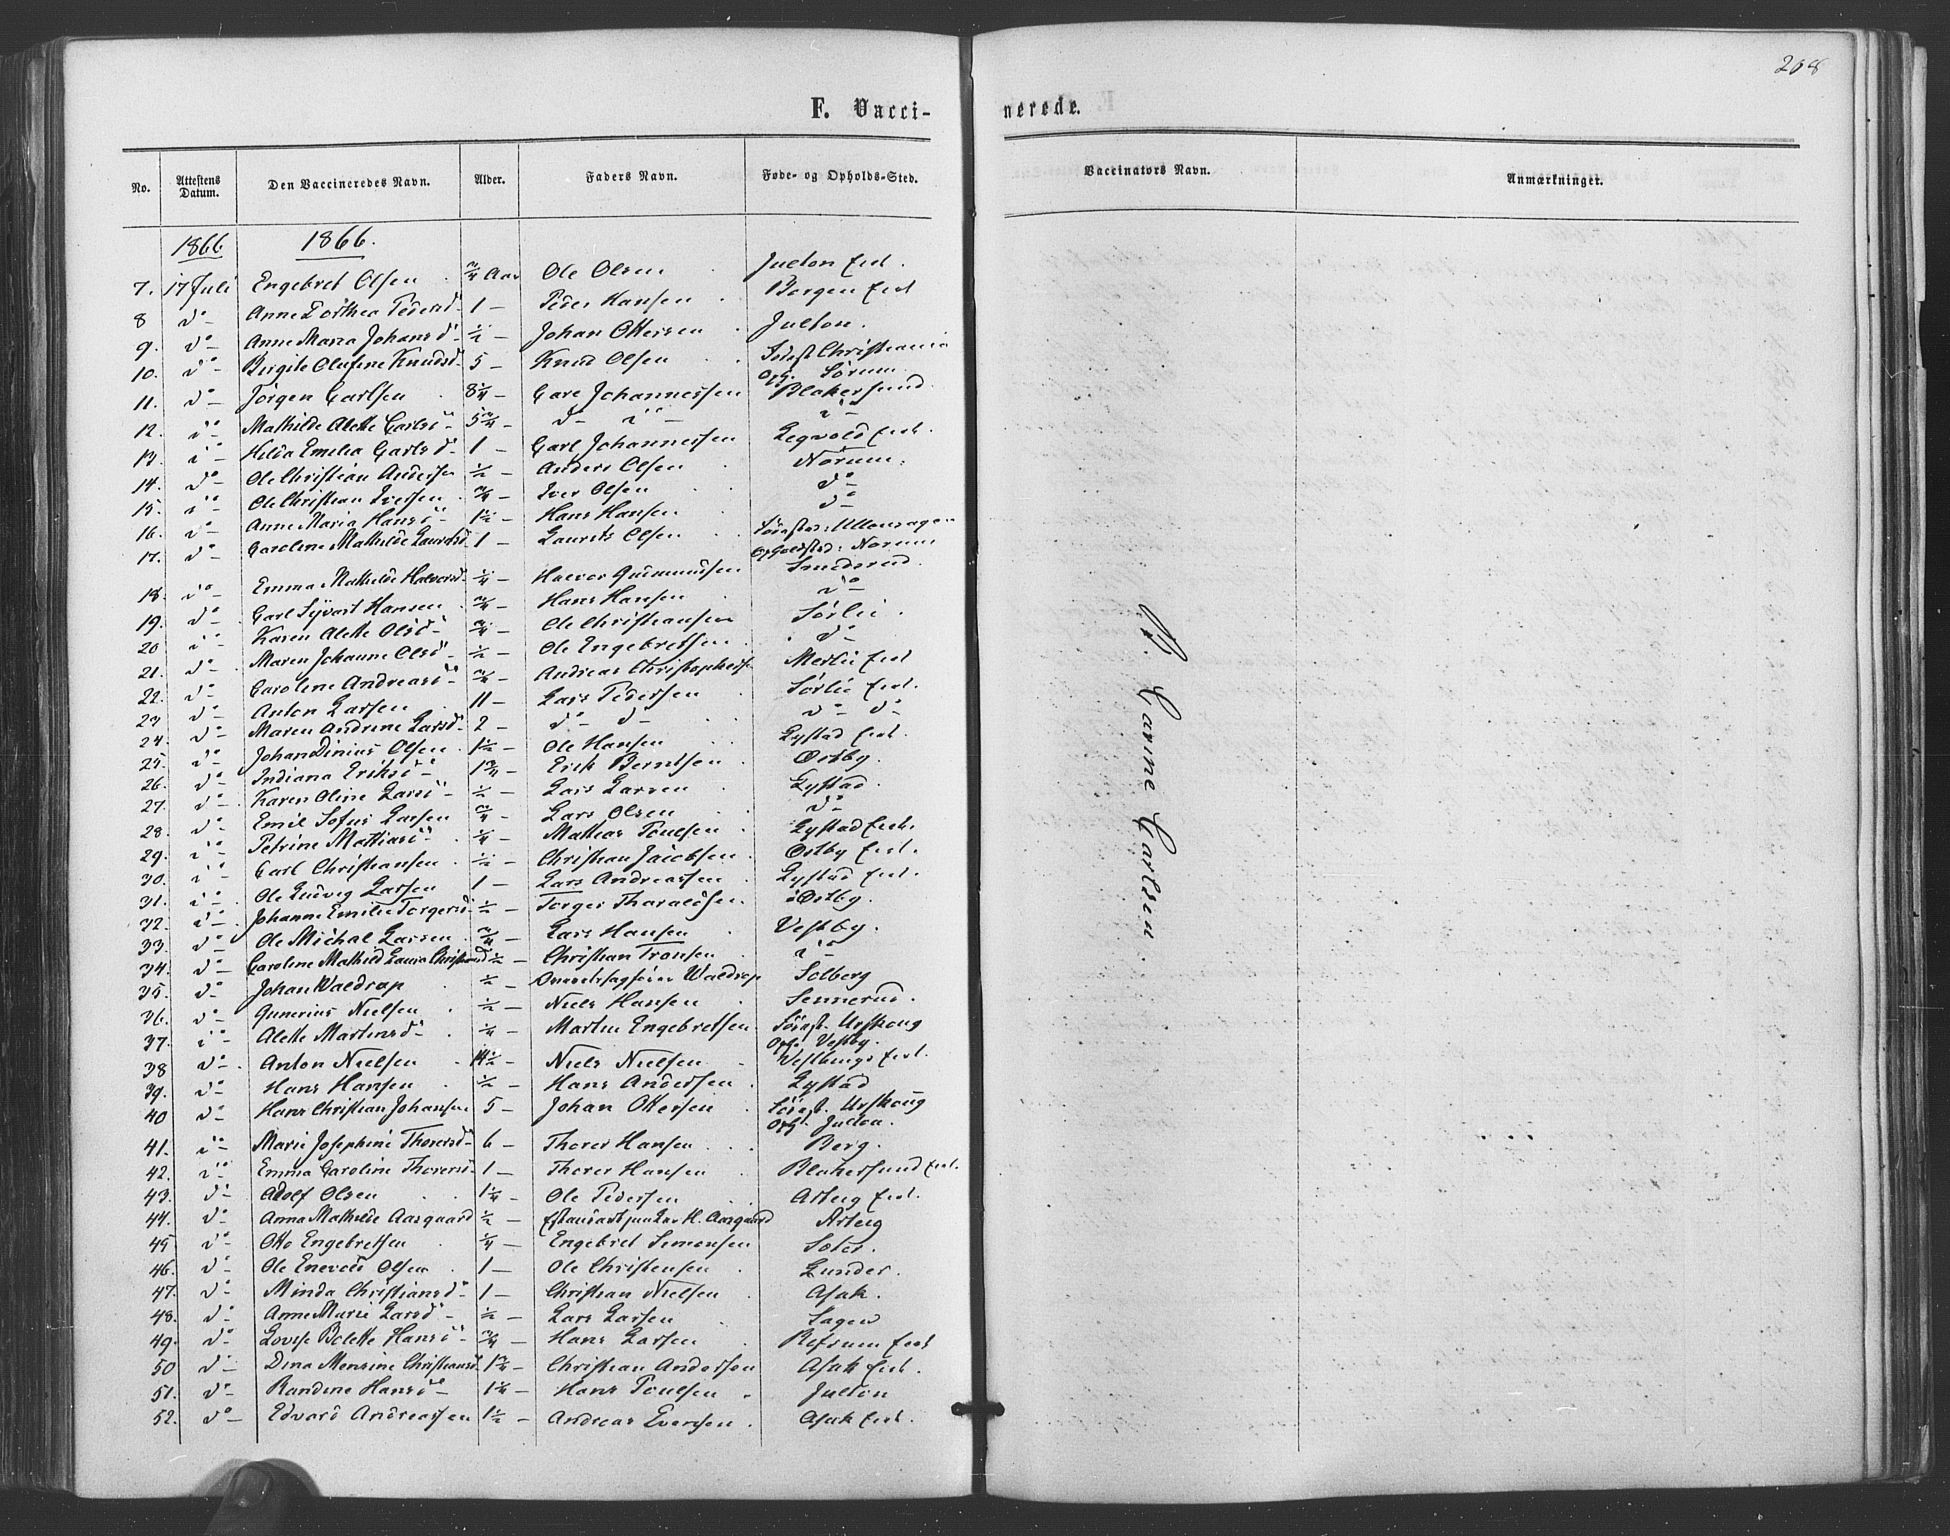 208
F. Vacci-
nerede.
No. Attestens Datum. Den Vaccineredes Navn. Alder. Faders Navn. Føde- og Opholds-Sted. Vaccinators Navn. Anmærkninger.
1866 1866.
7. 17 Juli Engebret Olsen ¾ Aar Ole Olsen Julton Eiet.
8 do Anne Dorthea Pedersd 1 — Peder Hansen Borgen Eiet
9. do Anne Maria Johansd ½ — Johan Ottersen Julton.
10. do Birgite Olufine Knudsd 5 — Knud Olsen Fødest Christiania
Oph. Sørum
11. do Jörgen Carlsen 8¼ — Carl Johannessen Blakersund
12. do Mathilde Alette Carlsd 5¾ — do do do
13. do Hilda Emelia Carlsd 1 — Carl Johannessen Legvold Eiet.
14. do Ole Christian Andersen ½ — Anders Olsen Norum.
15. do Ole Christian Iversen ¾ — Iver Olsen do
16. do Anne Maria Hansd 1½ — Hans Hansen do
17. do Caroline Mathilde Lauritsd 1 — Laurits Olsen Fødested: Ullensager
Opholdsted: Norum
18. do Emma Mathilde Halvorsd ¼ — Halvor Gulmundsen Smedsrud
19. do Carl Syvart Hansen ¾ — Hans Hansen do
20 do Karen Alette Olsd ¾ — Ole Christiansen Sørlie.
21. do Maren Johanne Olsd ½ — Ole Engebretsen do
22. do Caroline Andreasd ¾ — Andreas Christophersen Merlie Eiet
23 do Anton Larsen 11 — Lars Pedersen Sørlie Eiet.
24. do Maren Andrine Larsd 2 — do do do do
25. do Johan Dinius Olsen 1½ — Ole Hansen Lystad Eiet.
26. do Indiana Eriksd 1¾ — Erik Berntsen Ostby.
27. do Karen Oline Larsd ½ — Lars Larsen Lystad.
28. do Emil Sofus Larsen ¾ — Lars Olsen do
29. do Petrine Mathiasd ¼ — Mathias Poulsen Lystad Eiet.
30. do Carl Christiansen ½ — Christian Jacobsen Ostby Eiet.
31. do Ole Ludvig Larsen 1 — Lars Andreassen Lystad Eiet.
32. do Johanne Emilie Torgersd ½ — Torger Tharaldsen Ostby.
33. do Ole Michal Larsen ¾ — Lars Hansen Vestby.
34. do Caroline Mathild Laura Christiansd ½ — Christian Tronsen do
35. do Johan Waldrap ½ — Overretssagfører Waldrap Solberg
36. do Gunerius Nielsen ½ — Niels Hansen Sennerud.
37. do Alette Martinsd ¼ — Martin Engebretsen Fødest. Urskoug
Oph. Vestby.
38 do Anton Nielsen 14½ — Niels Nielsen Vestbungs Eiet.
39. do Hans Hansen ½ — Hans Andersen Lystad
40 do Hans Christian Johansen 5 — Johan Ottersen Fødest. Urskoug
Oph. Julton.
41. do Marie Josephine Thorersd 6 — Thorer Hansen Berg.
42. do Emma Caroline Thorersd 1 — Thorer Hansen Blakersund Eiet.
43. do Adolf Olsen 1¼ — Ole Pedersen Asberg Eiet.
44. do Anna Mathilde Aasgaard ½ — H. Aasgaard Asberg
45 do Otto Engebretsen ¼ — Engebret Simensen Sæter.
46. do Ole Enevold Olsen 1 — Ole Christensen Lunder.
47. do Minda Christiansd 1 — Christian Nielsen Asak.
48. do Anne Marie Larsd ½ — Lars Larsen Sagen
49. do Lovise Bolette Hansd ¾ — Hans Larsen Refsum Eiet
50 do Dina Mensine Christiansd 1¾ — Christian Andersen Asak Eiet.
51. do Randine Hansd 1¼ — Hans Poulsen Julton
52. do Edvard Andreassen 1½ — Andreas Evensen Asak Eiet.
Carine Carlsen